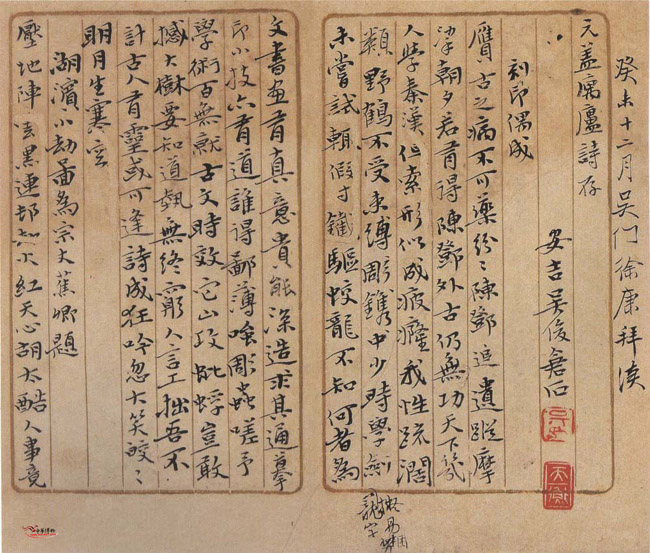 癸未十二月吳门徐康拜讀
元盖寓廬詩存
安吉吳俊倉石
刻印偶成
贋古之病不可藥紛々陳鄧追遺蹤摩
挲朝夕若有得陳鄧外古仍無功天下幾
人學秦漢但索形似成疲癃我性疏闊
類野鶴不受束縛彫鐫中少時學劍
未嘗試輒假寸鐵驅蛟龍不知何者為
龍字
文書畫有真意貴能深造求其通摹
印小技亦有道誰得鄙薄嗤彫蟲嗟予
學術古無獻古文時效它山攻蚍蜉豈敢
撼大樹要知道執無終窮人言工拙吾不
計古人有靈或可逢詩成狂吟忽大笑皎々
明月生寒空
湖濱小劫圖為宗丈蕉卿題
壓地陣雲黑連邨烈火紅天心胡太酷人事竟